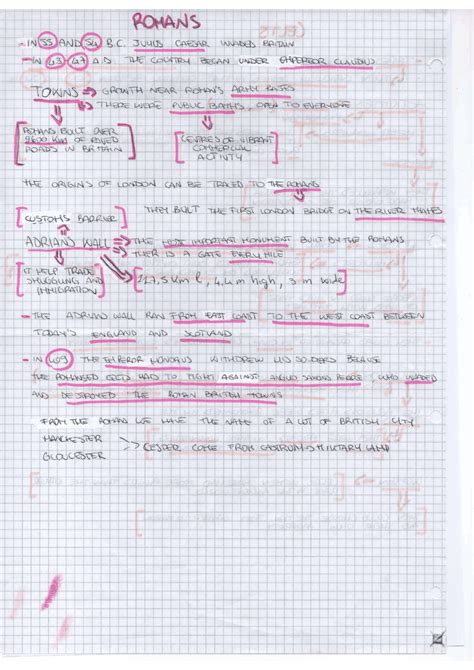 ROMANS
- IN 55 AND 54 B.C. JULIUS CAESAR INVADED BRITAIN
- IN 43-47 A.D. THE COUNTRY BEGAN UNDER EMPEROR CLAUDIO
TOWNS => GROWTH NEAR ROMAN'S ARMY BASES
=> THERE WERE PUBLIC BATHS, OPEN TO EVERYONE
ROMANS BUILT OVER 9600 KM OF PAVED ROADS IN BRITAIN
CENTRES OF VIBRANT COMMERCIAL ACTIVITY
THE ORIGINS OF LONDON CAN BE TRACED TO THE ROMANS
CUSTOMS BARRIER
THEY BUILT THE FIRST LONDON BRIDGE ON THE RIVER THAMES
ADRIANS WALL => THE MOST IMPORTANT MONUMENT BUILT BY THE ROMANS
=> THER IS A GATE EVERY MILE
IT HELP TRADE SMUGGLING AND IMMIGRATION
117,5 Km l, 4,4 m high, 3 m wide
- THE ADRIANS WALL RAN FROM EAST COAST TO THE WEST COAST BETWEEN
TODAY'S ENGLAND AND SCOTLAND
- IN 409 THE EMPEROR HONORIUS WITHDREW HIS SOLDIERS BECAUSE
THE ROMANISED CELTS HAD TO FIGHT AGAINST ANGLO SAXONS PEOPLE, WHO INVADED
AND DESTROYED THE ROMAN BRITISH TOWNS
FROM THE ROMANS WE HAVE THE NAME OF A LOT OF BRITISH CITY
MANCHESTER
GLOUCESTER
>CESTER COME FROM CASTRUM -> MILITARY LAND